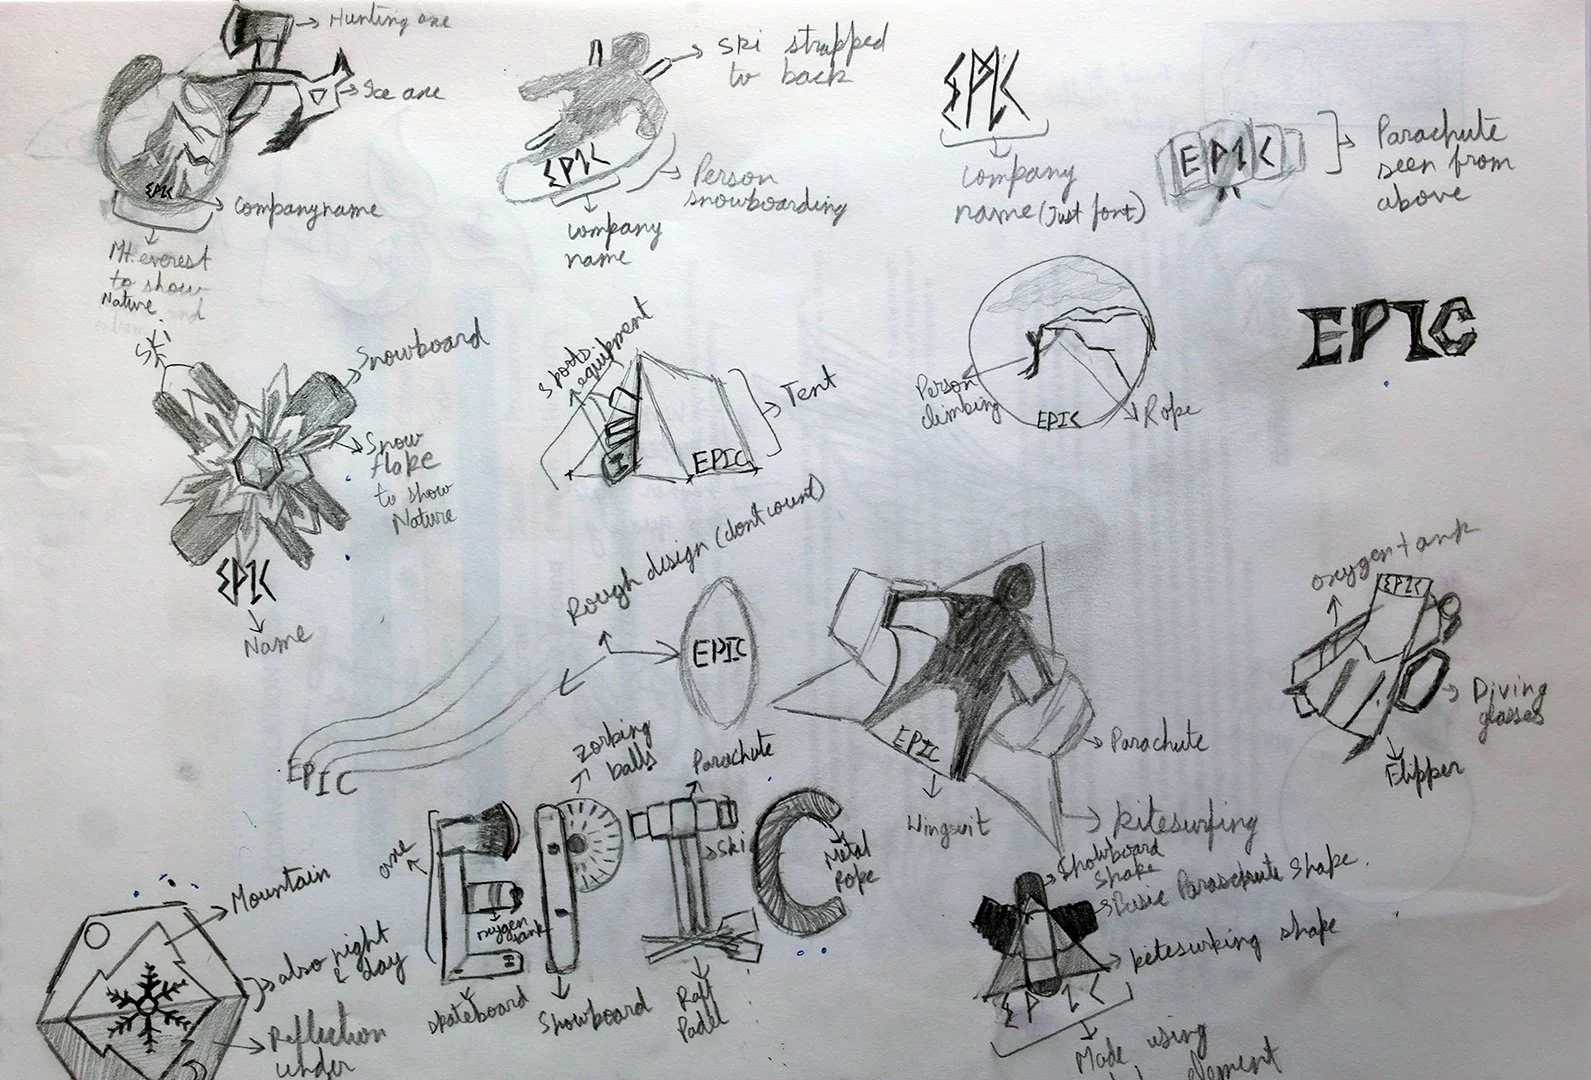 Hunting axe
Ice axe
EPIC
Company name
Mt. everest
to show
Nature
Ski strapped
to back
EPIC
Person
snowboarding
company
name
EPIC
company
name (Just font)
EPIC
Parachute
seen from
above
Ski
Snowboard
Snow
flake
to show
Nature
EPIC
Name
Sports
equipment
Tent
I
EPIC
Person
climbing
EPIC
Rope
EPIC
Rough design (dont count)
EPIC
EPIC
EPIC
Parachute
Wingsuit
kitesurfing
oxygen tank
EPIC
Diving
glasses
Flipper
Mountain
also night
& day
Reflection
under
axe
zorbing
balls
Parachute
Ski
Metal
Rope
oxygen
tank
skateboard
Snowboard
Raft
Padel
Snowboard
shape
Basic Parachute shape.
kitesurking shape
EPIC
Made using
element